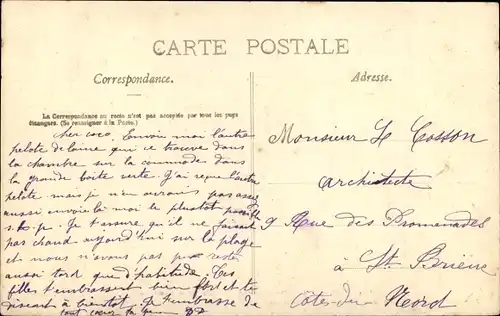 CARTE POSTALE
Correspondance.
Adresse.
La Correspondance au recto n'est pas acceptée par tous les pays
étrangers. (Se renseigner à la Poste.)
Cher coco. Envoie moi l'autre
pelote de laine qui ce trouve dans
la chambre sur la commode dans
la grande boite verte. J'ai reçue l'autre
pelote mais je n'en aurais pas assez
aussi envoie là moi le plustot possible
s.t.p. Je t'assure qu'il ne faisait
pas chaud aujourd'hui sur la plage
et nous n'avons pas pu resté
aussi tard que d'habitude. Tes
filles t'embrassent bien fort et te
disent à bientôt. Je t'embrasse de
tout cœur ta
Monsieur Le Cosson
architecte
9 Rue des Promenades
à St Brieuc
Côtes-du-Nord